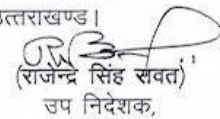 उत्तराखण्ड।
(राजेन्द्र सिंह रावत)
उप निदेशक,